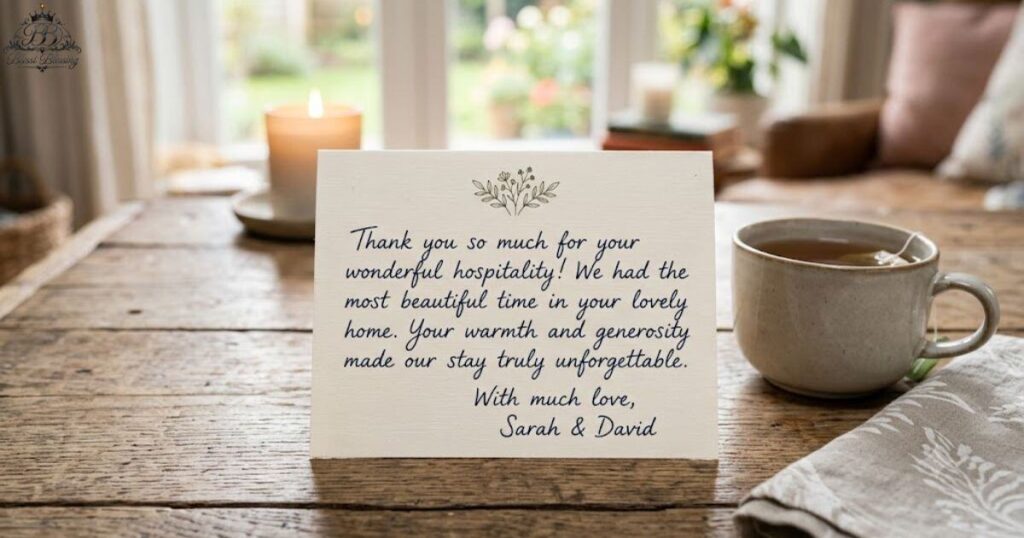 Thank you so much for your
wonderful hospitality! We had the
most beautiful time in your lovely
home. Your warmth and generosity
made our stay truly unforgettable.
With much love,
Sarah & David